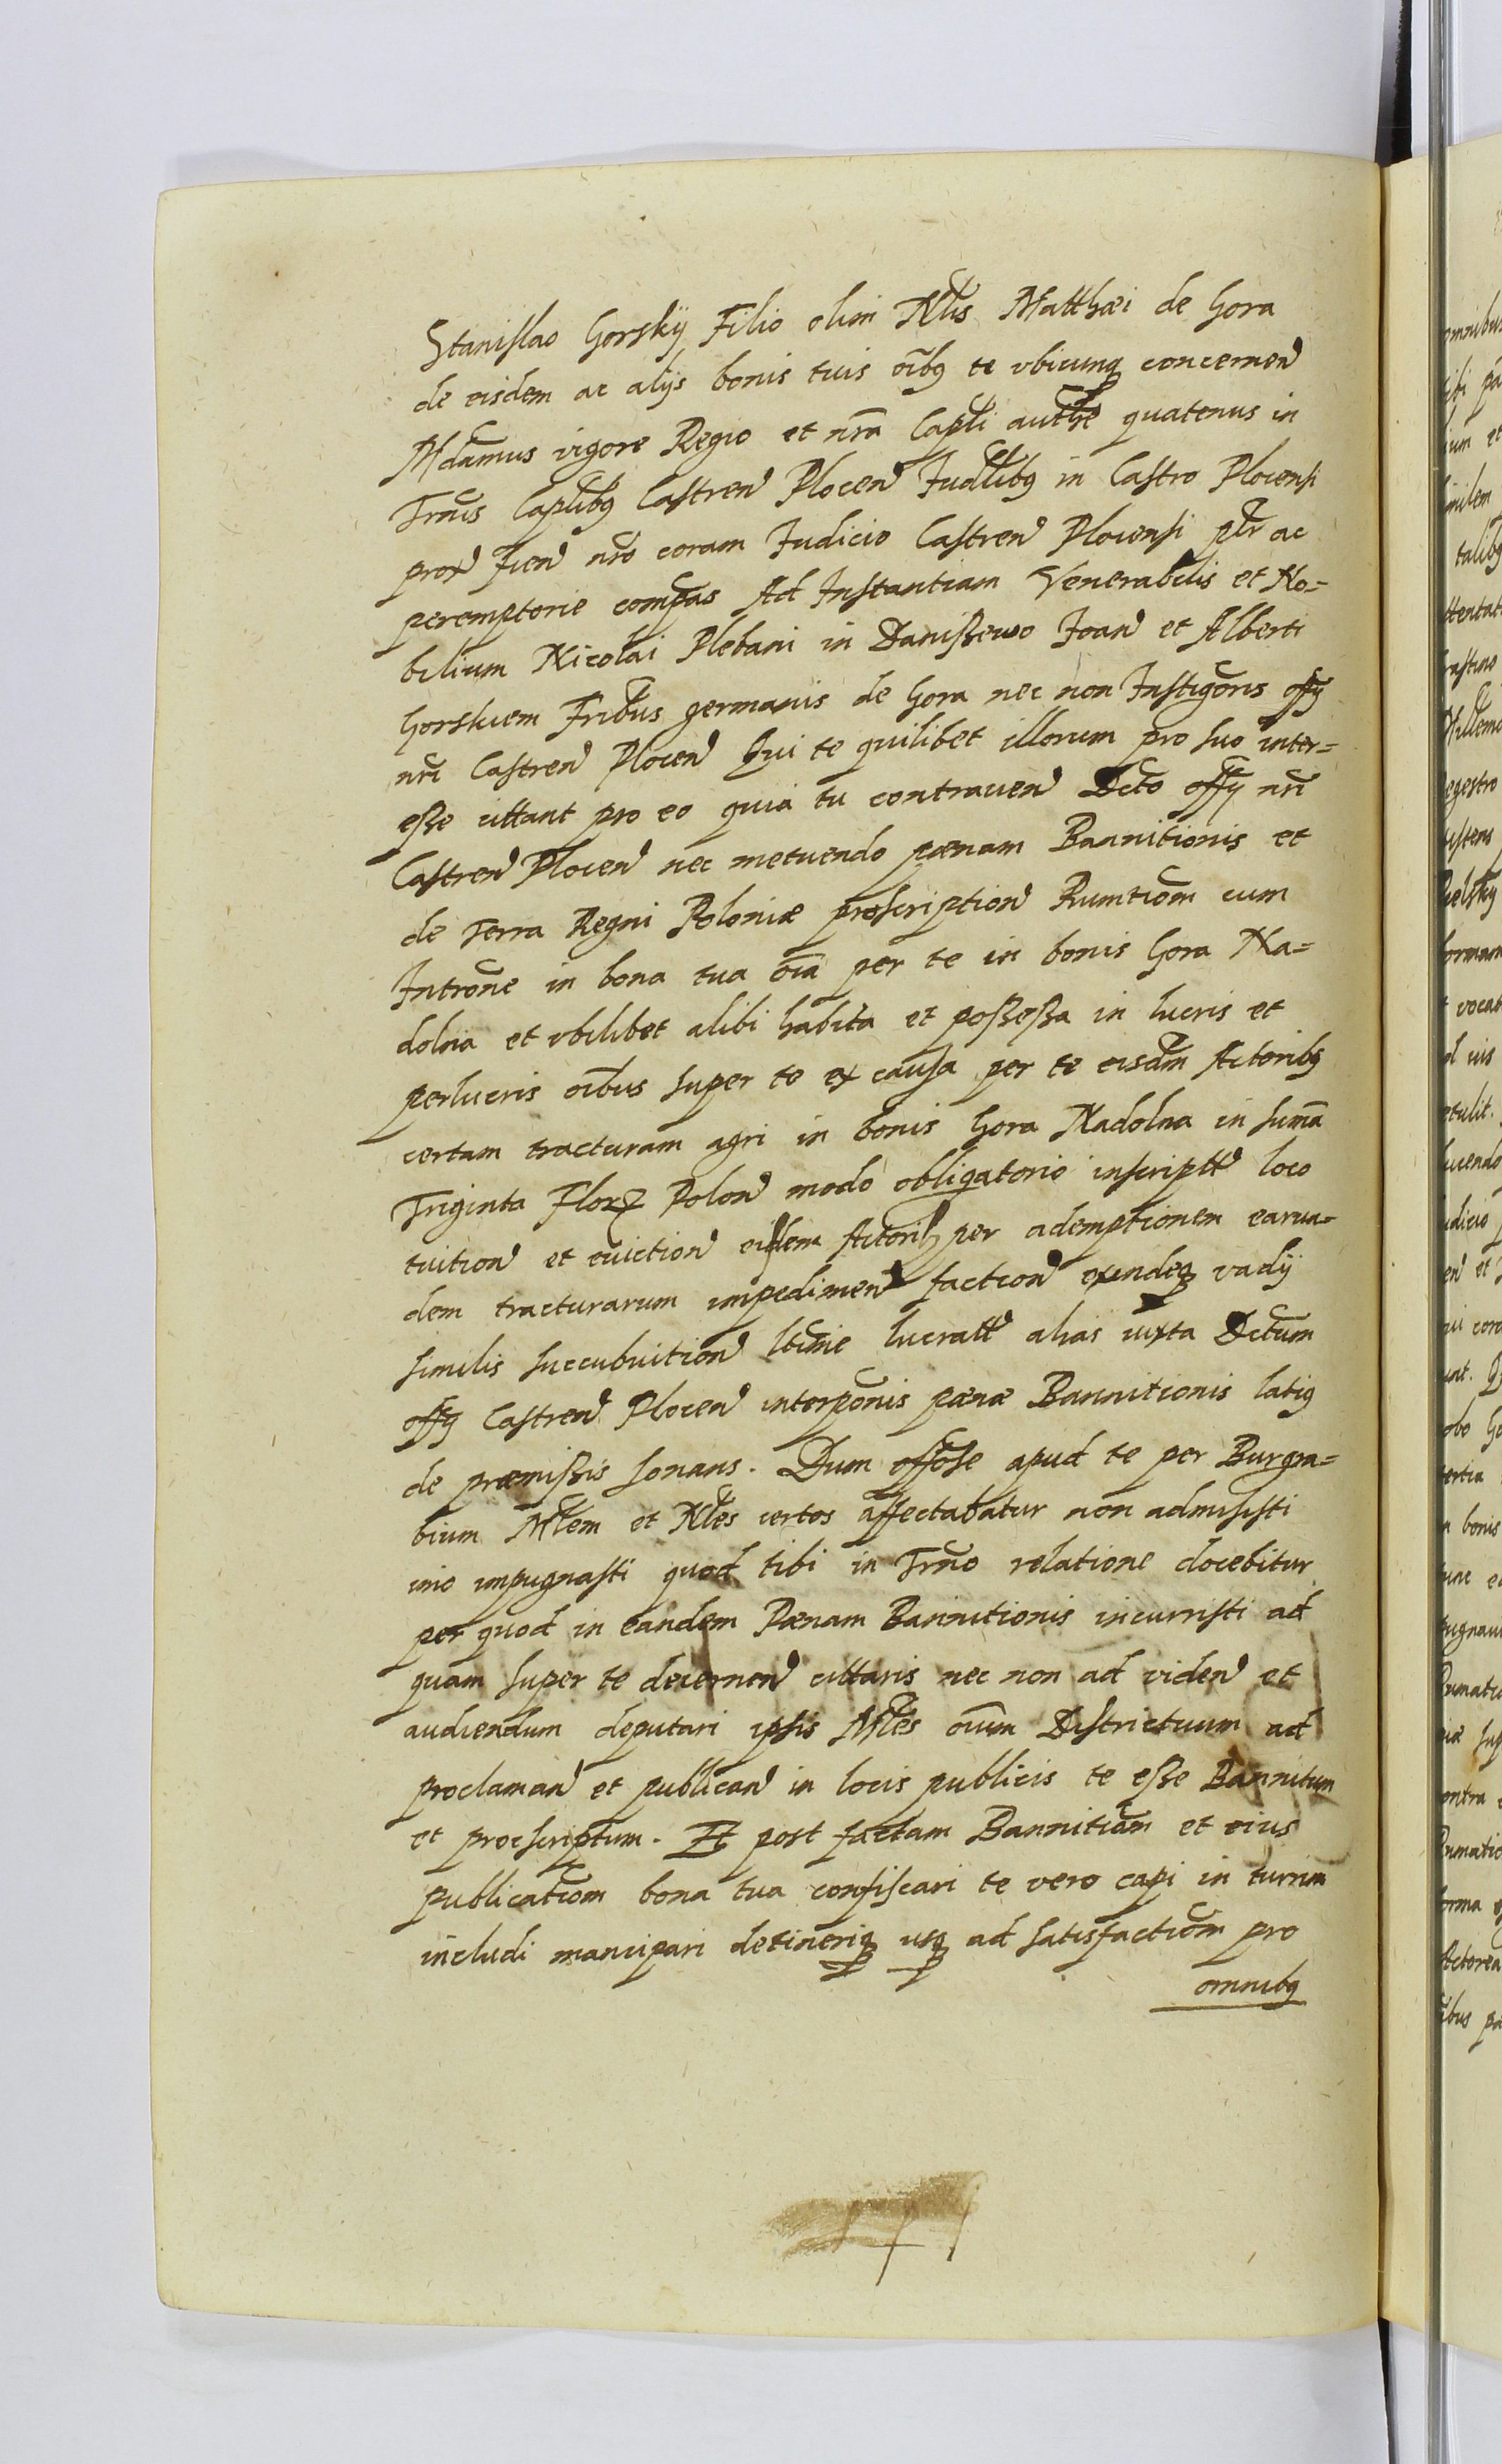 Stanislao Gorskij Filio olim Nlis Matthæi de Gora
de eisdem ac alijs bonis tuis oibq te vbicunq concernen
Mdamus vigore Regio et nra Capli authe quatenus in
Trnis Caplibq Castren Plocen Judlibq in Castro Plocensi
prox fien nro coram Judicio Castren Plocensi pltr ac
peremptorie compas Ad Instantiam Venerabilis et No-
bilium Nicolai Plebani in Danißewo Joan et Alberti
Gorskiem Fribus germanis de Gora nec non Instigoris offy
nri Castren Plocen Qui te quilibet illorum pro suo inter-
eße cittant pro eo quia tu contrauen Dcto offy nri
Castren Plocen nec metuendo pœnam Bannitionis et
de Terra Regni Poloniæ proscription Rumtiom cum
Introne in bona tua oia per te in bonis Gora Na-
dolna et vbilibet alibi habita et poßeßa in lucris et
perlucris oibus super te ex causa per te eisdm Actoribq
certam tracturam agri in bonis Gora Nadolna in suma
Triginta Flor Polon modo obligatorio inscriptt loco
tuition et euiction eisdem Actorib per ademptionem earun-
dem tracturarum impedimen faction exindeq vadij
similis succubuition ltime lucratt alias iuxta Dctum
offy Castren Plocen interponis pœnæ Bannitionis latiq
de præmißis sonans. Dum offose apud te per Burgra-
bium Mlem et Nles certos affectabatur non admisisti
imo impugnasti quod tibi in Trno relatione docebitur
per quod in eandem Pœnam Bannitionis incurristi ad
quam super te decernen cittaris nec non ad viden et
audiendum deputari ipsis Mles oium Districtuum ad
proclaman et publican in locis publicis te eße Bannitum
et proscriptum. Et post factam Bannitiom et eius
publicatiom bona tua confiscari te vero capi in turrim
includi mancipari detineriq usq ad satisfactiom pro
omnibq